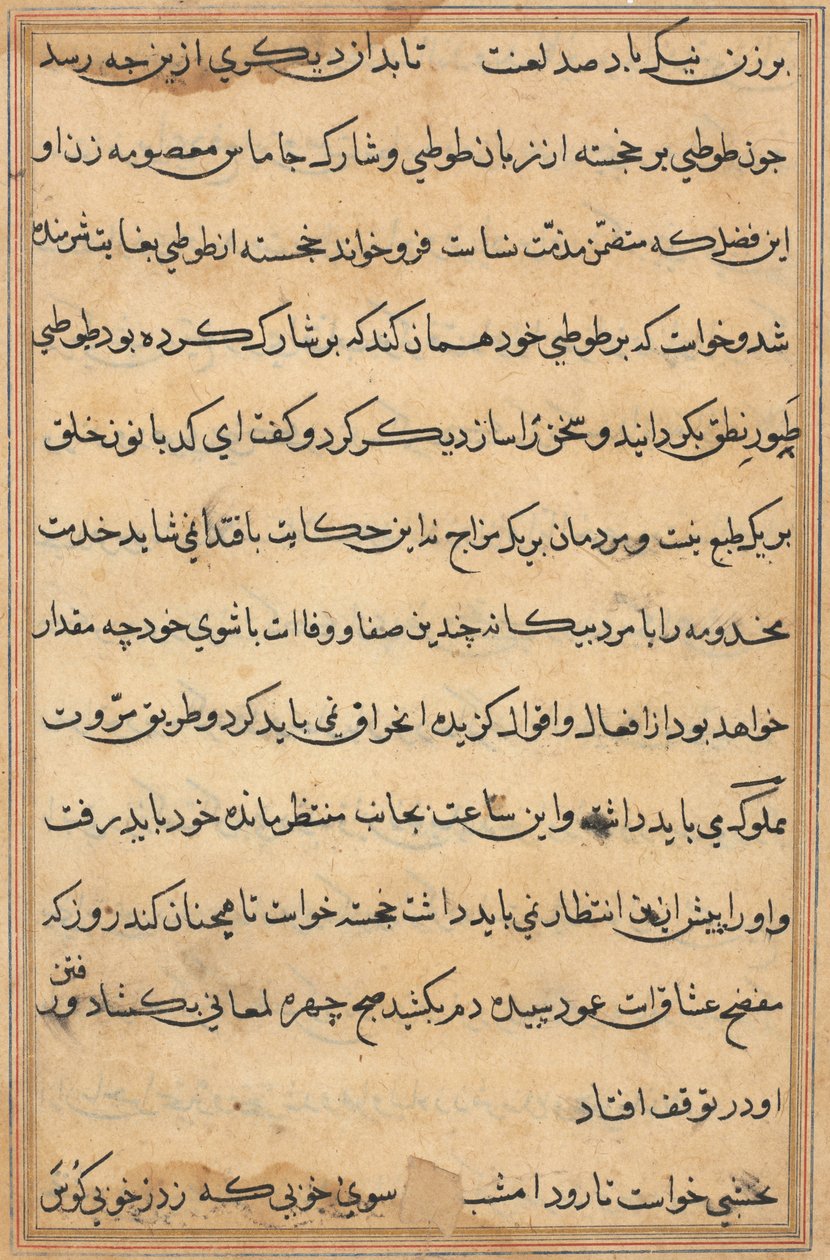 بر زن نیک باد صد لعنت تا بدان دیکری ازین جه رسد
جون طوطی بر خجسته از زبان طوطی و شارک جا ماس معصومه زن او
این فصل که متضمّن مذمّت نساست فرو خواند خجسته از طوطی بغایت شرمنده
شد و خواست که بر طوطی خود همان کند که بر شارک کرده بود طوطی
طَیورِ نطق بکردانید و سخن را ساز دیکر کرد و کفت ای کدبانو خلق
بر یک طبع نیست و مردمان بر یک مزاج نه این حکایت باقتدا نمی شاید خدمت
مخدومه را با مرد بیکانه چندین صفا و وفاست با شوی خود چه مقدار
خواهد بود از افعال و اقوال کزیده انحراق نمی باید کرد و طریق مرّوت
مملوک می باید داشت و این ساعت بجانب منتظر مانده خود باید رفت
و او را پیش ازین انتظار نمی باید داشت خجسته خواست تا همچنان کند روز که
مفضح عشاق است عمود سپیده دم بکشید صبح چهره لمعانی بکشاد و رفتن
او در توقف افتاد
نخشبی خواست تا رود امشب سوی خوبی که زد ز خوبی کُوسَ